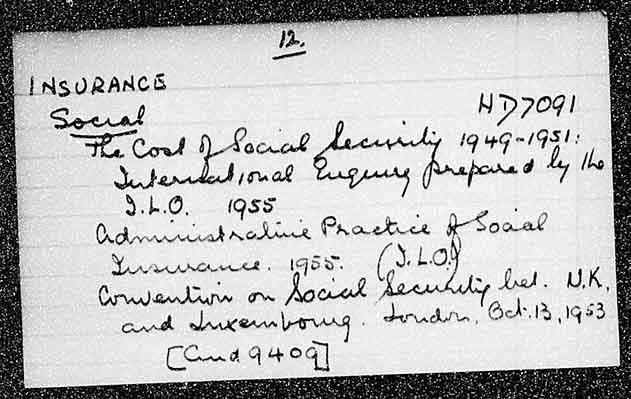 12.
INSURANCE
HD7091
Social
The Cost of Social Security 1949-1951:
International Enquiry prepared by the
I.L.O. 1955
Administrative Practice of Social
Insurance. 1955. (I.L.O.)
Convention on Social Security bet. U.K.
and Luxembourg. London, Oct. 13, 1953
[Cmd 9409]